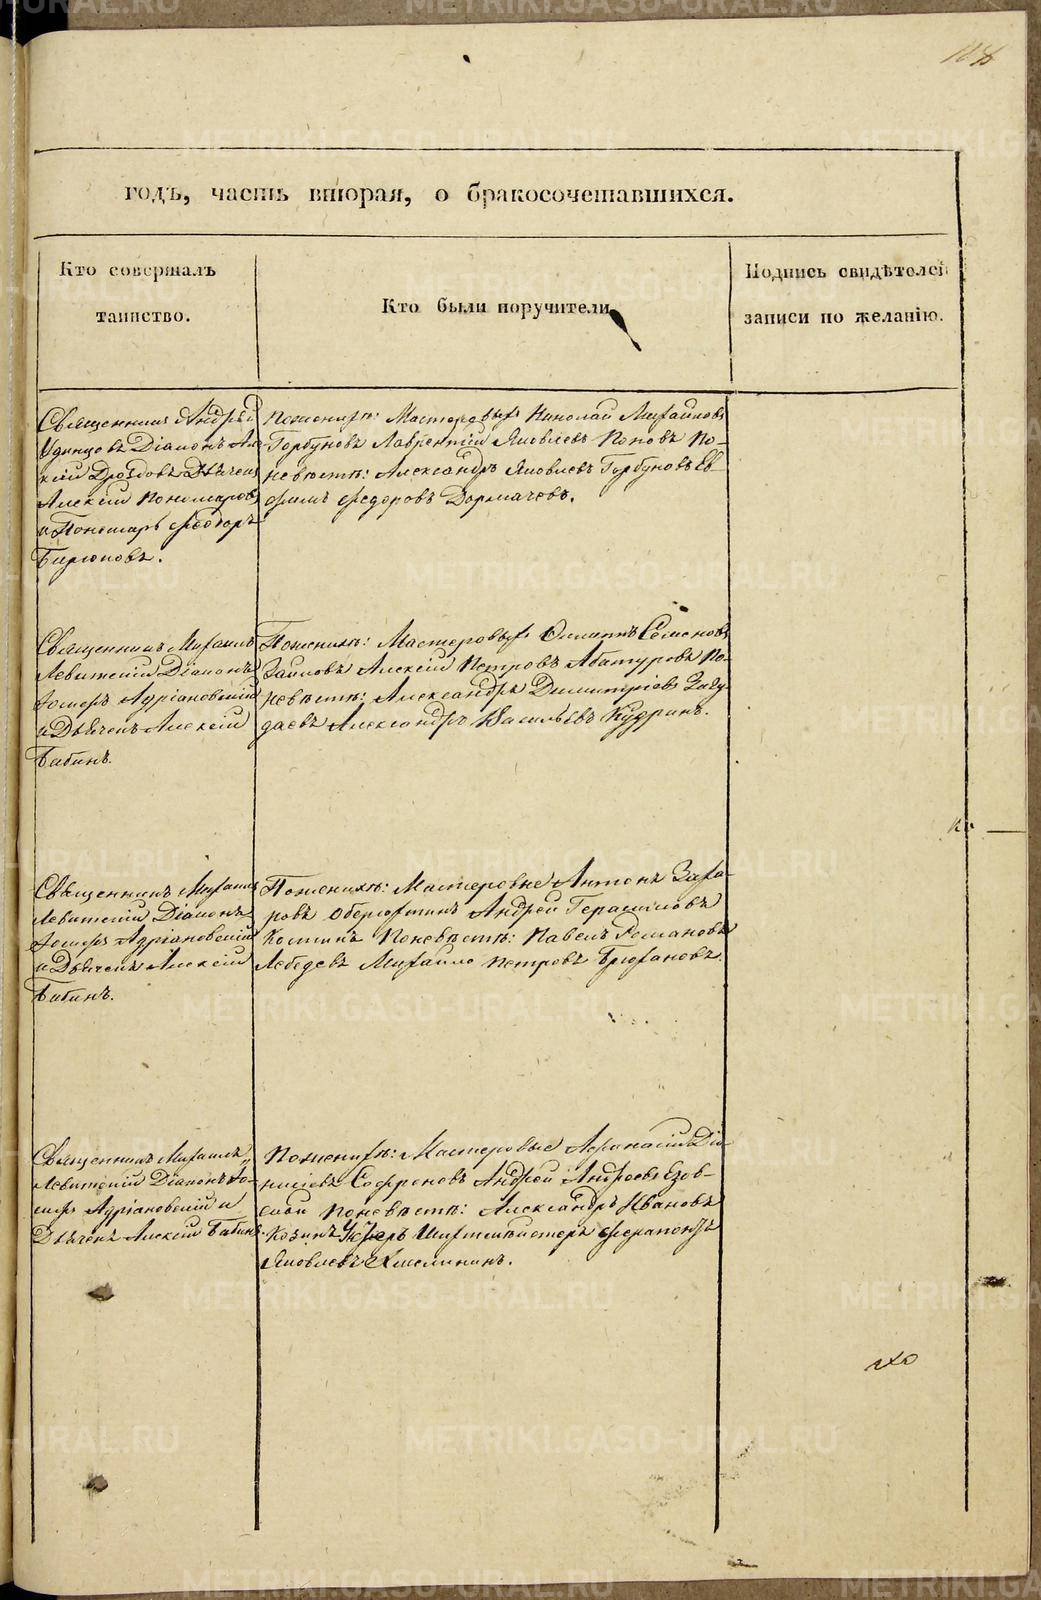 годъ, часть вторая, о бракосочетавшихся.
Кто совершалъ
таинство.
Кто были поручители
Подпись свидѣтелей
записи по желанію.
Священникъ Андрей
Удинцовъ Діаконъ Але
ксій Дроздовъ Дьячекъ
Алексій Пономаревъ
и Пономарь Феодоръ
Бирюковъ.
Поженихѣ: Мастеровыя Николай Михайловъ
Горбуновъ Лаврентій Яковлевъ Поповъ По-
невѣстѣ: Александръ Яковлевъ Горбуновъ Ев
фимъ Федоровъ Дормачевъ.
Священникъ Михаилъ
Левитскій Діаконъ
Іосифъ Адріановскій
и Дьячекъ Алексій
Бабинъ.
Поженихѣ: Мастеровыя Филипъ Семеновъ
Заиковъ Алексій Петровъ Абатуровъ По-
невѣстѣ: Александръ Димитріевъ Загу-
даевъ Александръ Васильевъ Кудринъ.
Священникъ Михаилъ
Левитскій Діаконъ
Іосифъ Адріановскій
и Дьячекъ Алексій
Бабинъ.
Поженихѣ: Мастеровые Антонъ Заха-
ровъ Оберюхтинъ Андрей Герасимовъ
Костинъ Поневѣстѣ: Павелъ Романовъ
Лебедевъ Михайло Петровъ Брюхановъ.
Священникъ Михаилъ
Левитскій Діаконъ Іо-
сифъ Адріановскій и
Дьячекъ Алексій Бабинъ.
Поженихѣ: Мастеровые Афанасій Діо-
нисіевъ Софроновъ Андрей Андреевъ Езов-
ской Поневѣстѣ: Александръ Ивановъ
Козинъ Унтеръ Шихтмейстеръ Ферапонтъ
Яковлевъ Хмелининъ.
METRIKI.GASO-URAL.RU